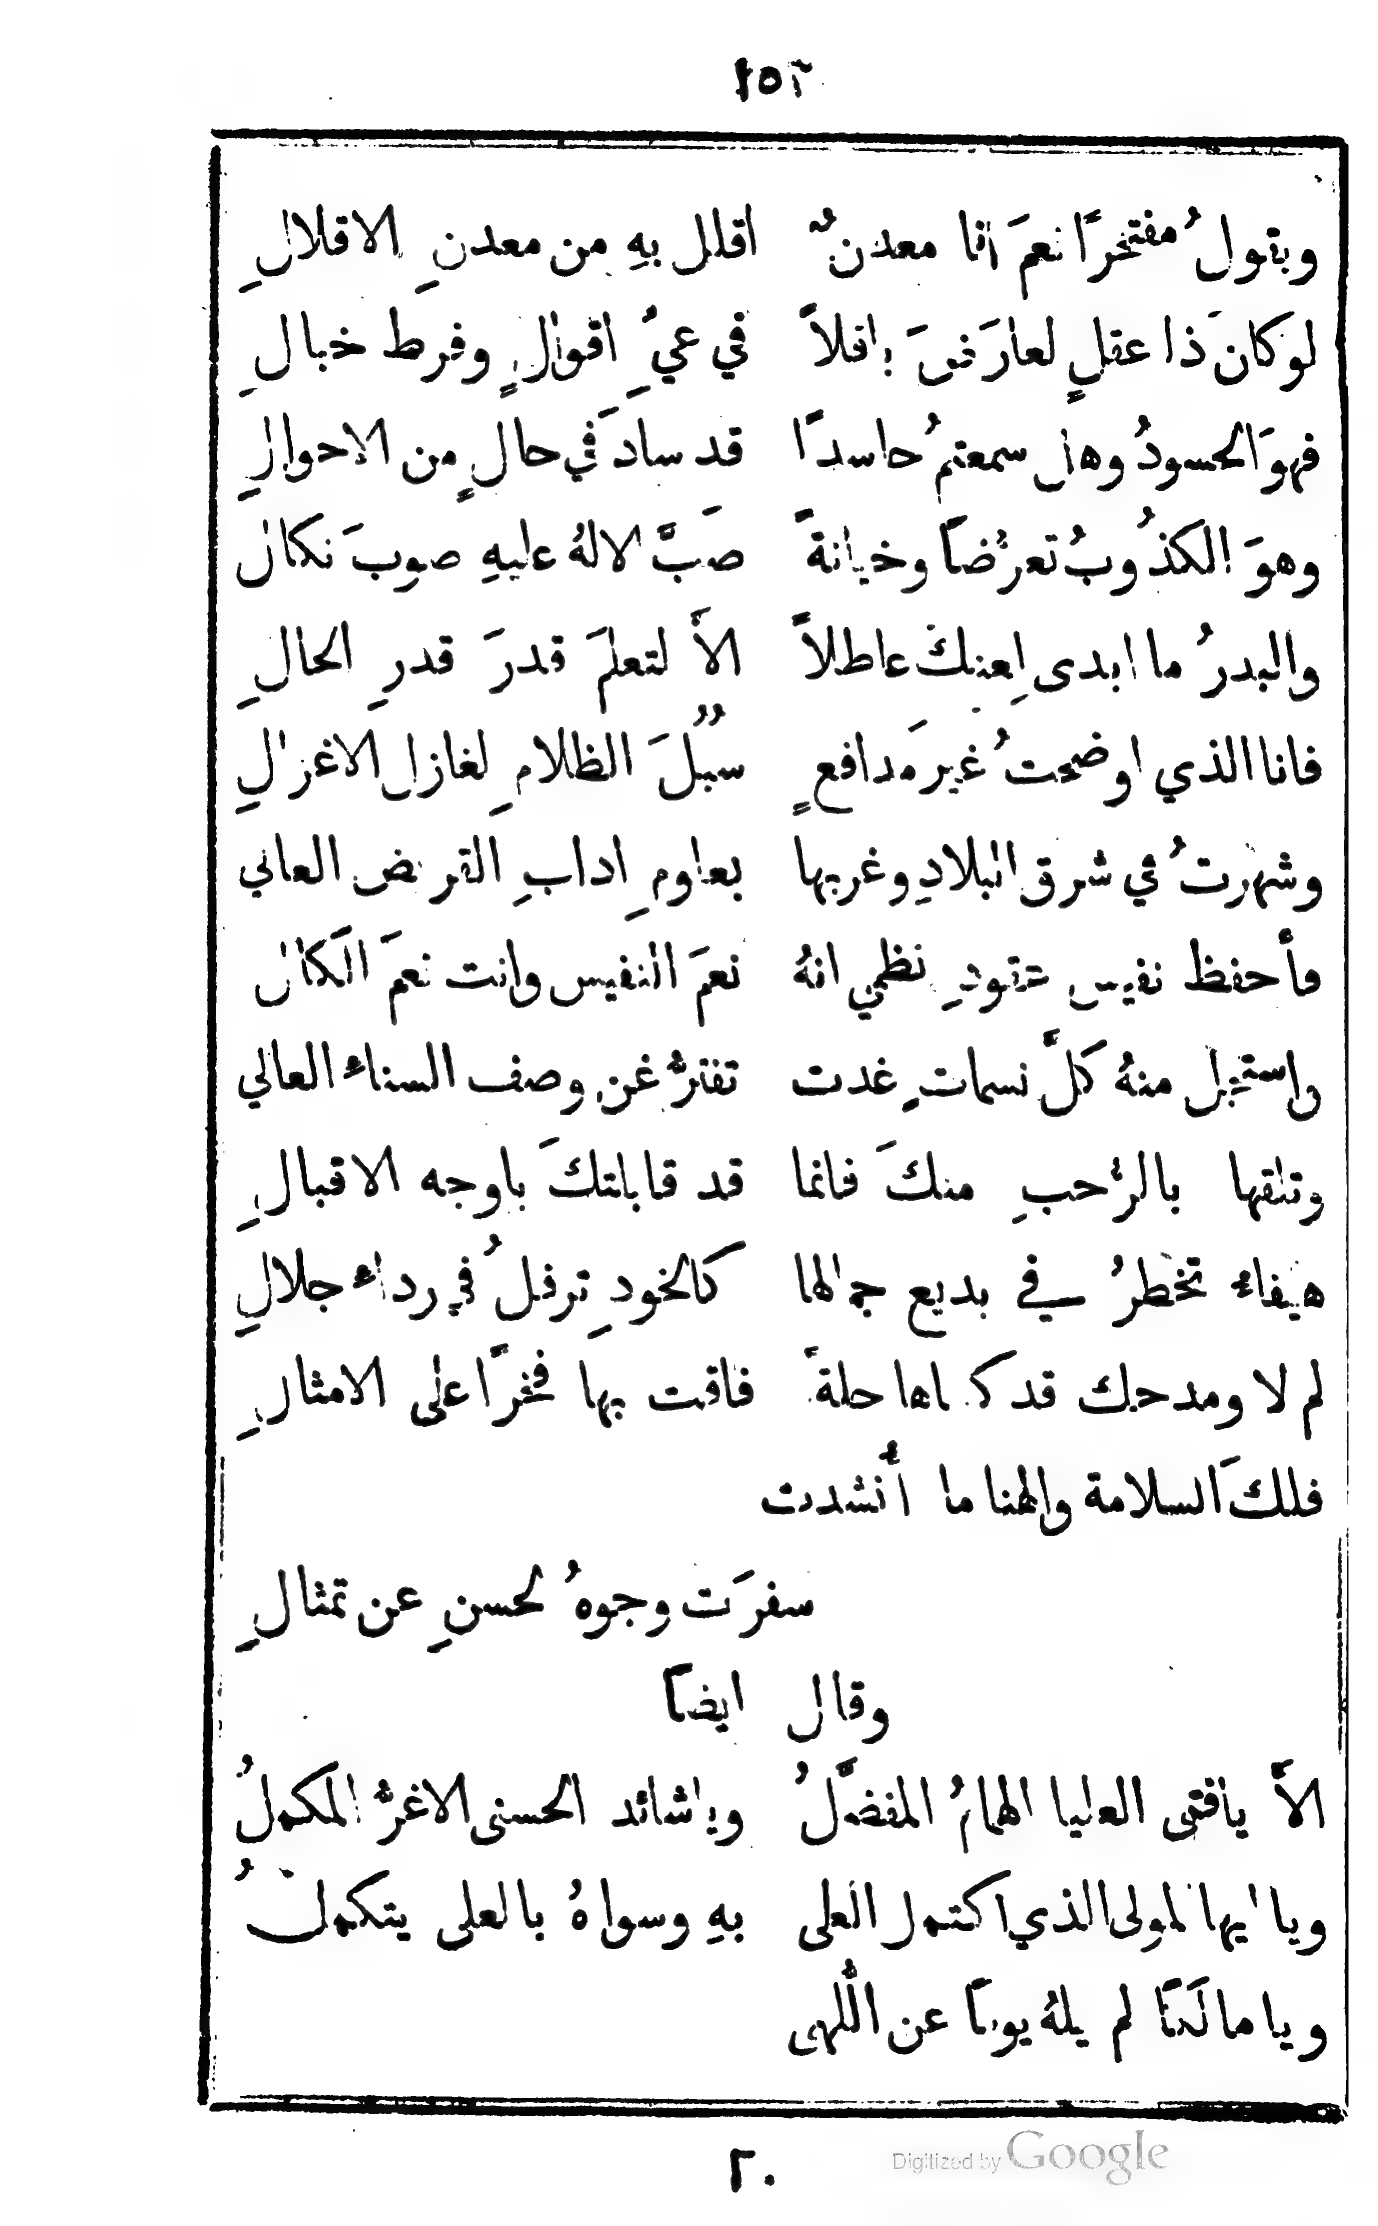 ١٥٣
ويقولُ مفتخرًا نعمَ انا معدنٌ اقلل بهِ من معدنِ الاقلالِ
لو كانَ ذا عقلٍ لعارَضَ باقلاً في عيِّ اقوالٍ وفرط خبالِ
فهوَ الحسودُ وهل سمعتمُ حاسدًا قد سادَ في حالٍ من الاحوالِ
وهوَ الكذُوبُ تعرُّضاً وخيانةً صَبَّ الالهُ عليهِ صوبَ نكال
والبدرُ ما ابدى لِعينكَ عاطلاً الاَّ لتعلمَ قدرَ قدرِ الحالِ
فانا الذي اوضحتُ غيرَ مدافعٍ سُبُلَ الظلامِ لغازل الاغزالِ
وشهرتُ في شرق البلادِ وغربها بعلومِ ادابِ القريض العالي
فأحفظ نفيس عقودِ نظمي انهُ نعمَ النفيس وانت نعمَ الكال
واستجل منهُ كلَّ نسماتٍ غدت تفترُّ عن وصف السناء العالي
وتلقها بالرُّحبِ منكَ فانما قد قابلتكَ باوجه الاقبالِ
هيفاء تخطرُ في بديع جمالها كالخودِ ترفلُ في رداء جلالِ
لم لا ومدحك قد كساها حلةً فاقت بها فخرًا على الامثالِ
فلكَ السلامة والهنا ما أُنشدت
سفرَت وجوهُ لحسنِ عن تمثالِ
وقال ايضاً
الاَّ يافتى العليا الهمامُ المفضَّلُ ويا شائد الحسنى الاغرُّ المكملُ
ويا ايها المولى الذي اكتمل العلى بهِ وسواهُ بالعلى يتكملُ
ويا مالكًا لم يلهُ يوماً عن اللُّهى
٢٠
Digitized by Google